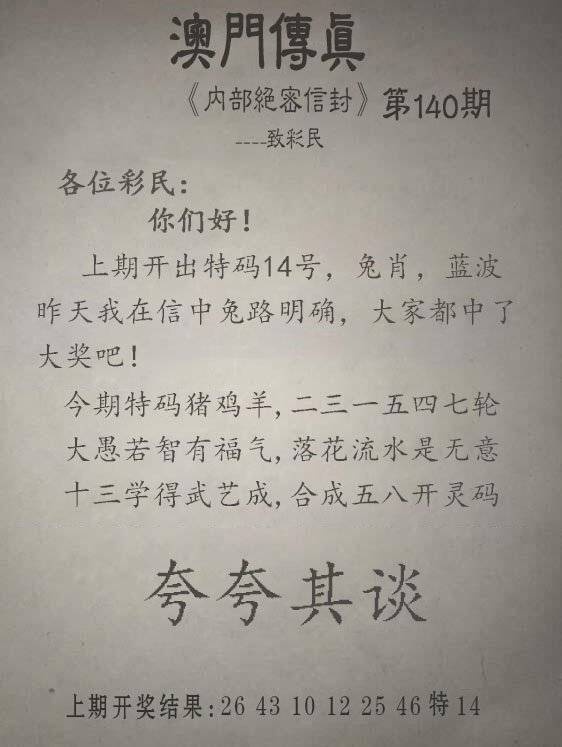 澳門傳眞
《内部絕密信封》第140期
----致彩民
各位彩民：
你们好！
上期开出特码14号，兔肖，蓝波
昨天我在信中兔路明确，大家都中了
大奖吧！
今期特码猪鸡羊,二三一五四七轮
大愚若智有福气,落花流水是无意
十三学得武艺成,合成五八开灵码
夸夸其谈
上期开奖结果:26 43 10 12 25 46 特 14